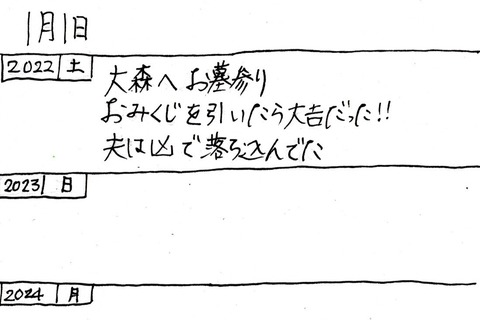 1月1日
2022 土
大森へお墓参り
おみくじを引いたら大吉だった!!
夫は凶で落ち込んでた
2023 日
2024 月